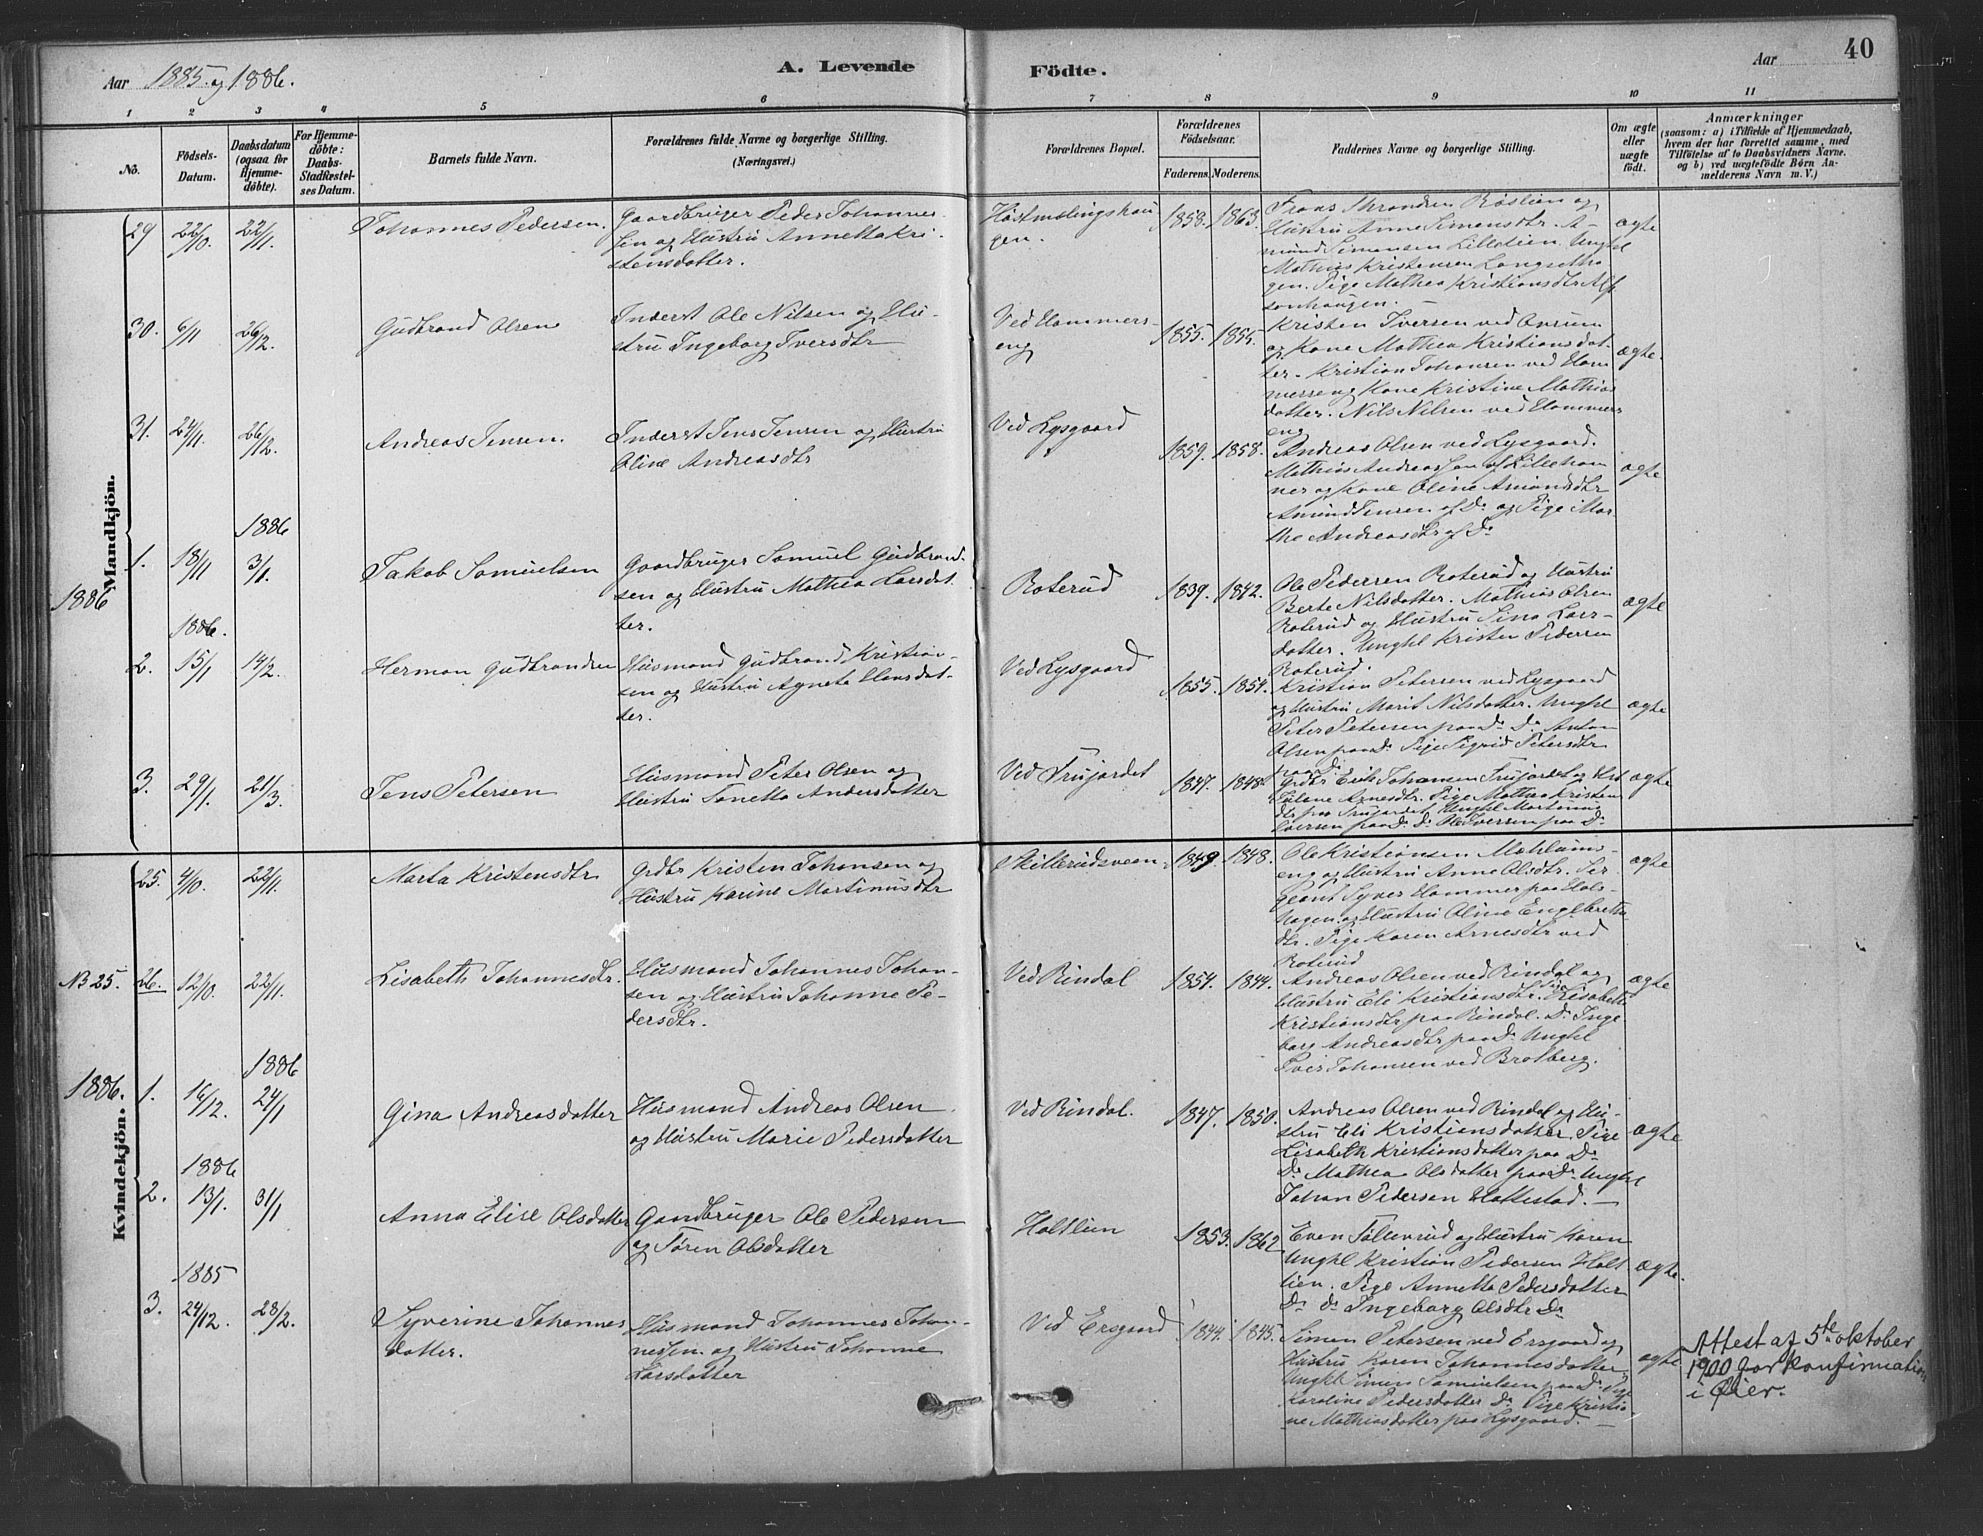 Aar 1885 og 1886.
A. Levende
Födte.
Aar
40
1 2 3 4 5 6 7 8 9 10 11
No.
Födsels-
Datum.
Daabsdatum
(ogsaa for
Hjemme-
döbte).
For Hjemme-
döbte:
Daabs-
Stadfæstel-
ses Datum.
Barnets fulde Navn.
Forældrenes fulde Navne og borgerlige Stilling.
(Næringsvei.)
Forældrenes Bopæl.
Forældrenes
Födselsaar.
Faderens. Moderens.
Faddernes Navne og borgerlige Stilling.
Om ægte
eller
uægte
födt.
Anmærkninger
(saasom: a) i Tilfælde af Hjemmedaab,
hvem der har forrettet samme, med
Tilföielse af to Daabsvidners Navne.
og b) ved uægtefödte Börn An-
melderens Navn m. V.)
Mandkjön.
29 22/10. 22/11.
Johannes Pedersen.
Gaardbruger Peder Johannes-
sen og Hustru Annetta Kri-
stensdatter.
1858. 1863.
Hustru Anne Simensdtr. A-
mund Simensen Lillelien. Unghl
Mathias Kristensen
gen. Pige Mathea Kristiansdtr
ægte
30. 6/11 26/12.
Gudbrand Olsen
Inderst Ole Nilsen og Hu-
stru Ingeborg Iversdtr
Ved Hammers-
eng
1855. 1855.
Kristen Iversen ved
og Kone Mathea Kristiansdat-
ter. Kristian Johansen ved Ham-
merseng Kone Kristine Mathias
datter. Nils Nilsen ved Hammers
eng
ægte.
31. 24/11. 26/12.
Andreas Jensen.
Inderst Jens Jensen og Hustru
Oline Andreasdtr
Ved Lysgaard
1859. 1858.
Andreas Olsen ved Lysgaard.
Mathias Andreassen af Lilleham
mer og Kone Oline Amundsdtr
Amund Jensen af Do og Pige Mar-
the Andreasdtr af Do
ægte
1886
1886
1. 18/11 3/1.
Jakob Samuelsen
Gaardbruger Samuel Gudbrand-
sen og Hustru Mathea Larsdat-
ter.
Roterud
1839. 1842.
Ole Pedersen Roterud og Hustru
Berte Nilsdatter. Mathias Olsen
Roterud og Hustru Sina Lars-
datter. Unghl Kristen Pedersen
Roterud.
ægte
1886.
2. 15/1 14/2.
Herman Gudbrandsen
Husmand Gudbrand Kristian-
sen og Hustru Agneta Hansdat-
ter.
Ved Lysgaard
1855. 1854.
Kristian Petersen ved Lysgaard
og Hustru Marit Nilsdatter. Unghl
Peter Petersen paa Do Do Anton
Olsen paa Do Pige Sigrid Petersdtr
paa Do
ægte
3. 29/1. 21/3.
Jens Petersen
Husmand Peter Olsen og
Hustru Janetta Andersdatter
Ved Trujordet
1847. 1848.
Grdbr Erik Johansen Trujordet og Hst
Juliane Arnesdtr. Pige Mathea Kristen
dtr paa Trujordet. Unghl Martinus
Iversen paa Do Do Ole Iversen paa Do
ægte
Kvindekjön.
25. 4/10. 22/11.
Marta Kristensdtr
Grdbr Kristen Johansen og
Hustru Karine Martinusdtr
Skillerudsveen
1849. 1848.
Ole Kristiansen Mæhlums-
eng og Hustru Anne Olsdtr. Ser-
geant Syver Hammer paa Hols-
hagen og Hustru Oline Engebrets
dtr. Pige Karen Arnesdtr ved
Roterud
ægte
NB 25. 26. 12/10. 22/11.
Lisabeth Johannesdtr.
Husmand Johannes Johan-
sen og Hustru Johanne Pe-
dersdtr.
Ved Rindal
1854. 1844.
Andreas Olsen ved Rindal og
Hustru Eli Kristiansdtr. Pige Lisabeth
Kristiansdtr paa Rindal. Do Inge-
borg Andreasdtr paa Do Unghl
Iver Johansen ved Brotberg.
ægte
1886
1886. 1. 16/12. 24/1
Gina Andreasdatter
Husmand Andreas Olsen
og Hustru Marie Pedersdatter
Ved Rindal.
1847. 1850.
Andreas Olsen ved Rindal og Hu-
stru Eli Kristiansdatter. Pige
Lisabeth Kristiansdatter paa Do
Do Mathea Olsdatter paa Do Unghl
Johan Pedersen Hattestad. —
ægte
1886
2. 13/1. 31/1
Anna Elise Olsdatter
Gaardbruger Ole Pedersen
og Søren Olsdatter
Holtlien
1853. 1862
Even Jøllerud og Hustru Karen
Unghl Kristian Pedersen Holt-
lien. Pige Annetta Pedersdatter
Do do Ingeborg Olsdtr Do
ægte.
1885
3. 24/12. 28/2.
Syverine Johannes
datter.
Husmand Johannes Johan-
nessen og Hustru Johanne
Larsdatter
Ved Ersgaard
1844. 1845.
Simen Petersen ved Ersgaard og
Hustru Karen Johannesdatter
Unghl Simen Samuelsen paa Do Pige
Karoline Pedersdatter Do Pige Kristia
ne Mathiasdatter paa Lysgaard. —
ægte
Attest af 5te oktober
1900 for konfirmation
i Øier.